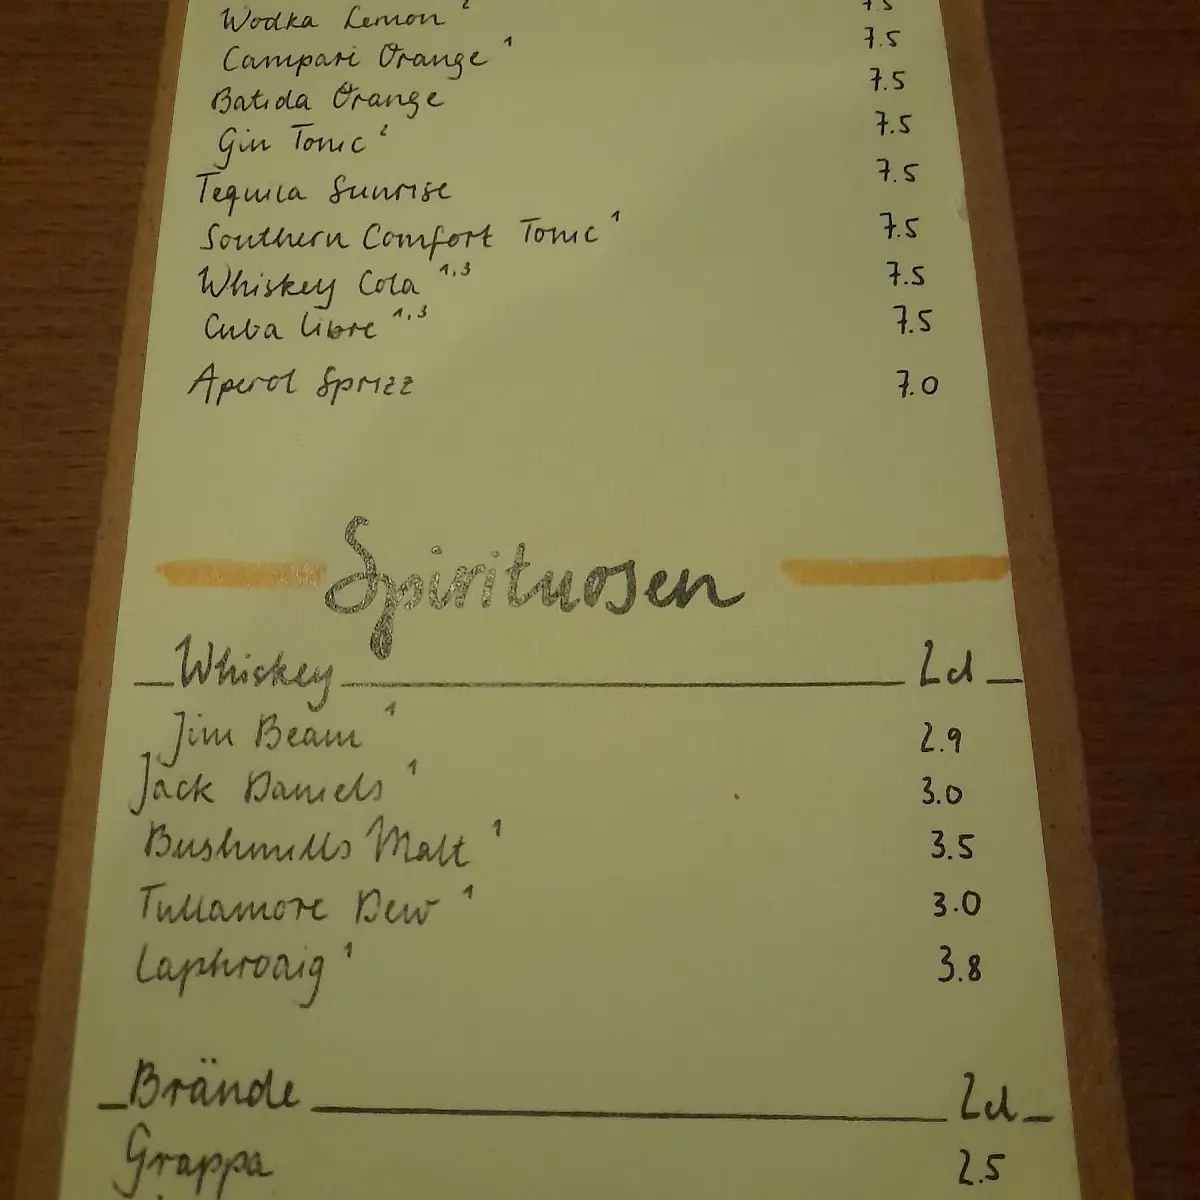 Wodka Lemon ² 7.5
Campari Orange ¹ 7.5
Batida Orange 7.5
Gin Tonic ² 7.5
Tequila Sunrise 7.5
Southern Comfort Tonic ¹ 7.5
Whiskey Cola ¹,³ 7.5
Cuba Libre ¹,³ 7.5
Aperol Sprizz 7.0
Spirituosen
Whiskey 2cl
Jim Beam ¹ 2.9
Jack Daniels ¹ 3.0
Bushmills Malt ¹ 3.5
Tullamore Dew ¹ 3.0
Laphroaig ¹ 3.8
Brände 2cl
Grappa 2.5